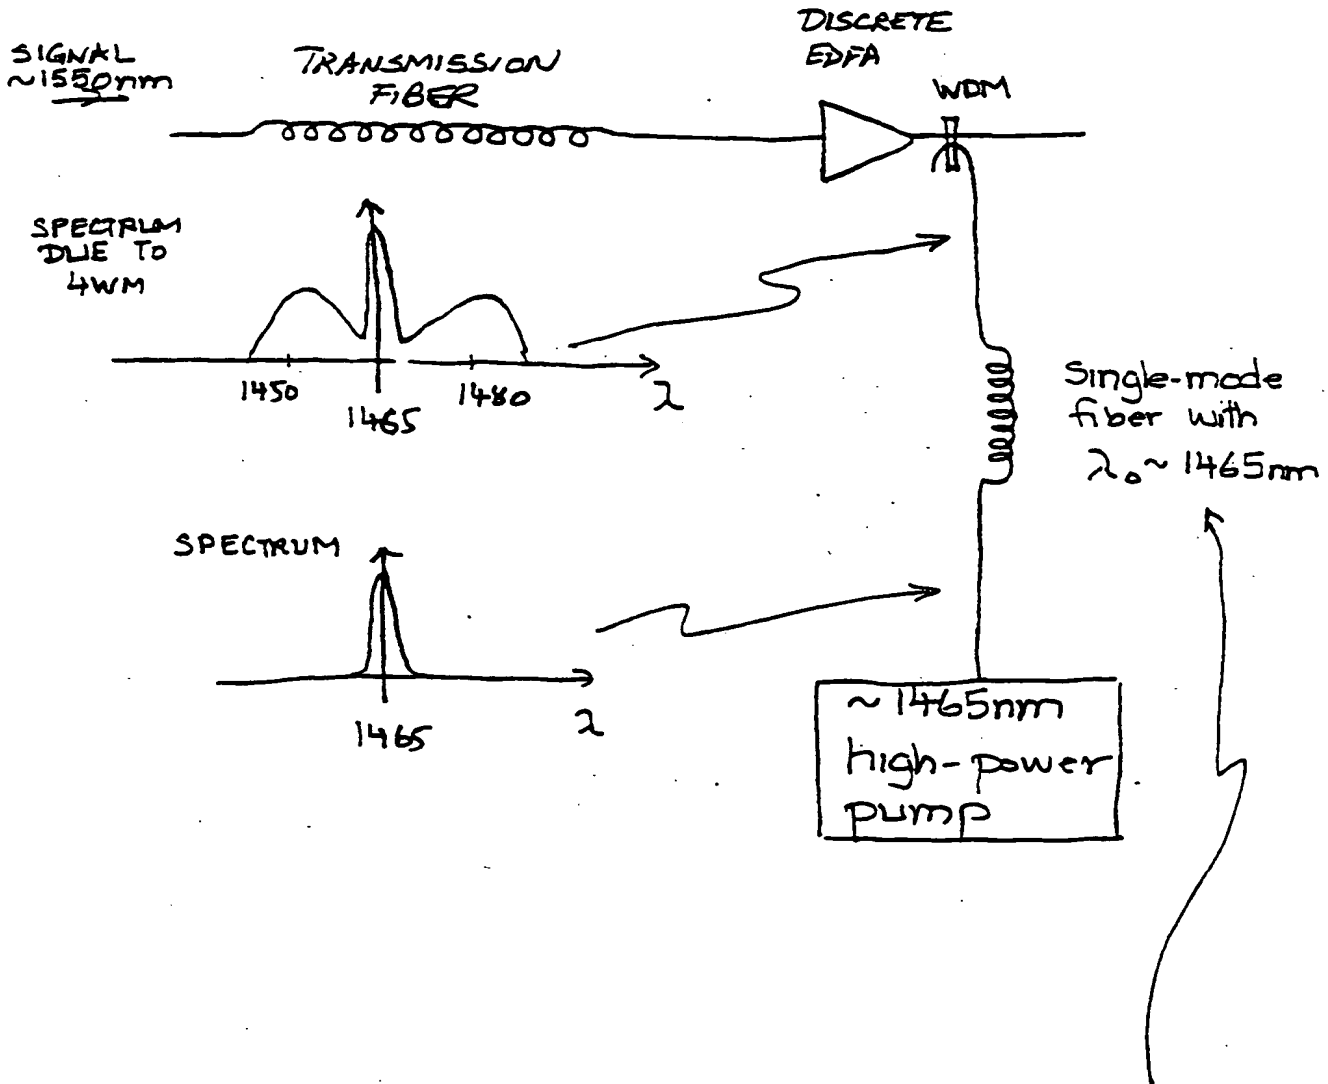 DISCRETE
EDFA
SIGNAL
~1550nm
TRANSMISSION
FIBER
WDM
SPECTRUM
DUE TO
4WM
1450
1465
1480
λ
Single-mode
fiber with
λ₀~1465nm
SPECTRUM
1465
λ
~1465nm
high-power
pump